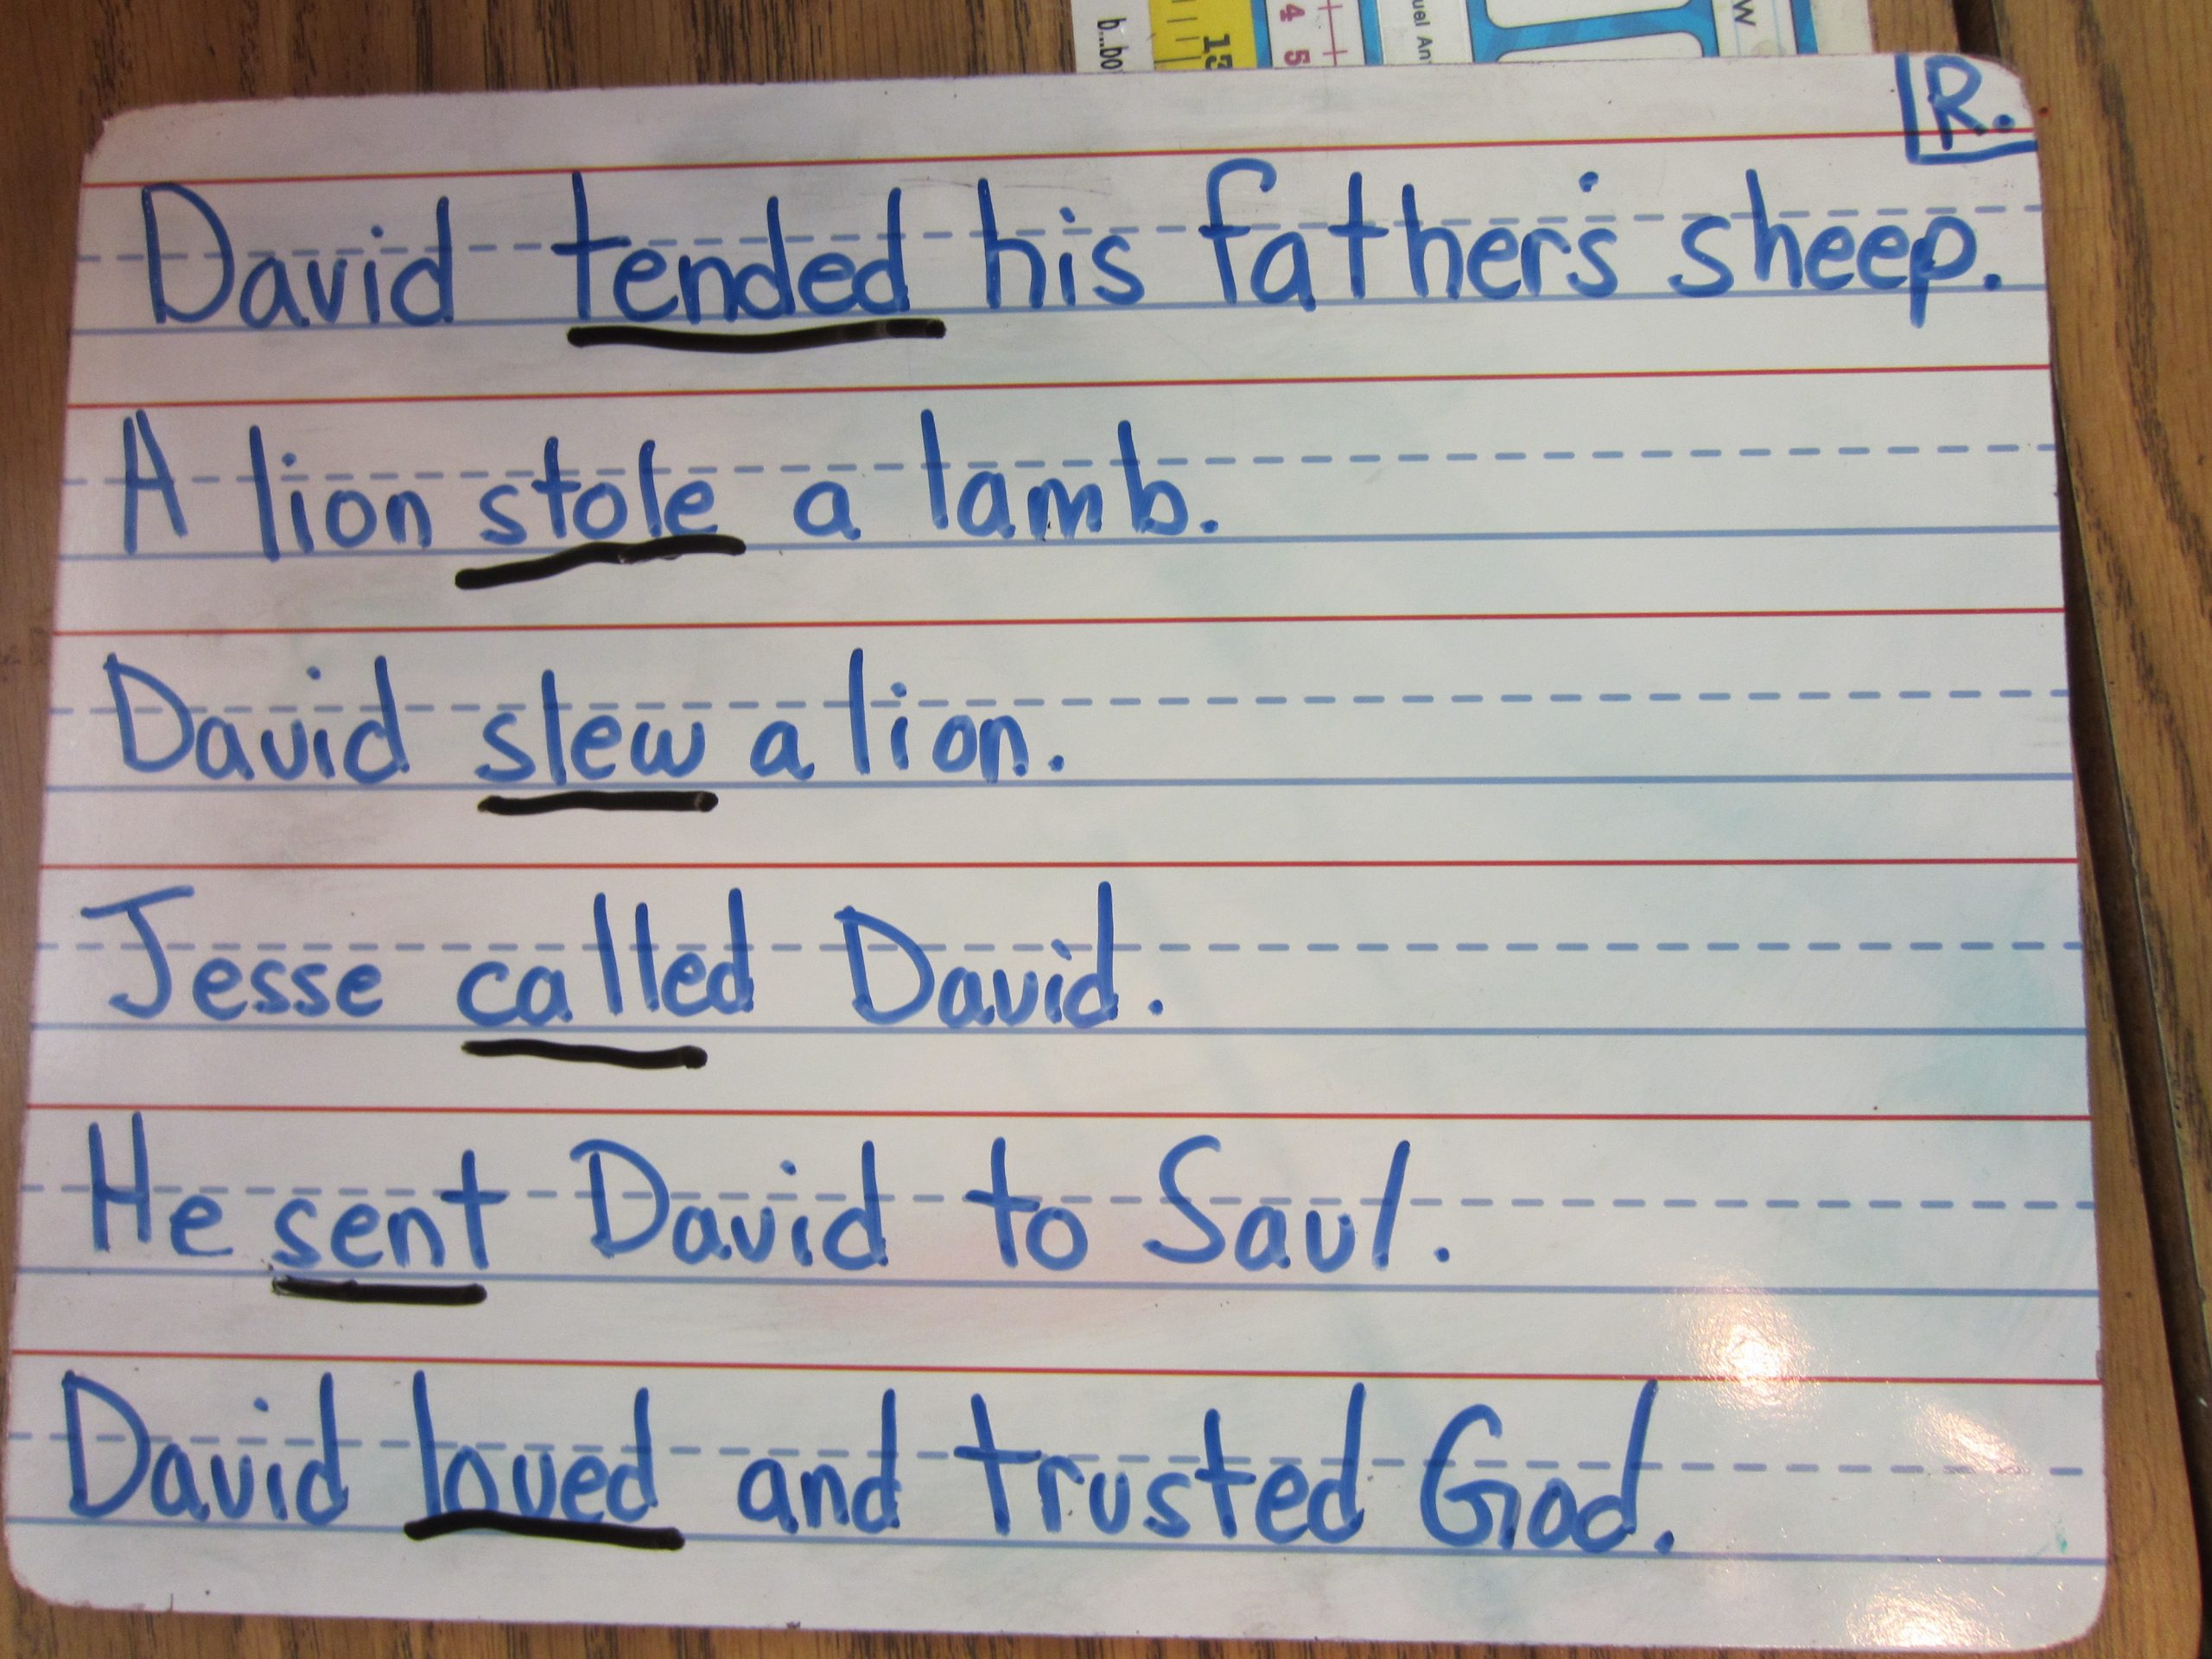 b...bo
13
4 5
uel An
W
R.
David tended his father's sheep.
A lion stole a lamb.
David slew a lion.
Jesse called David.
He sent David to Saul.
David loved and trusted God.